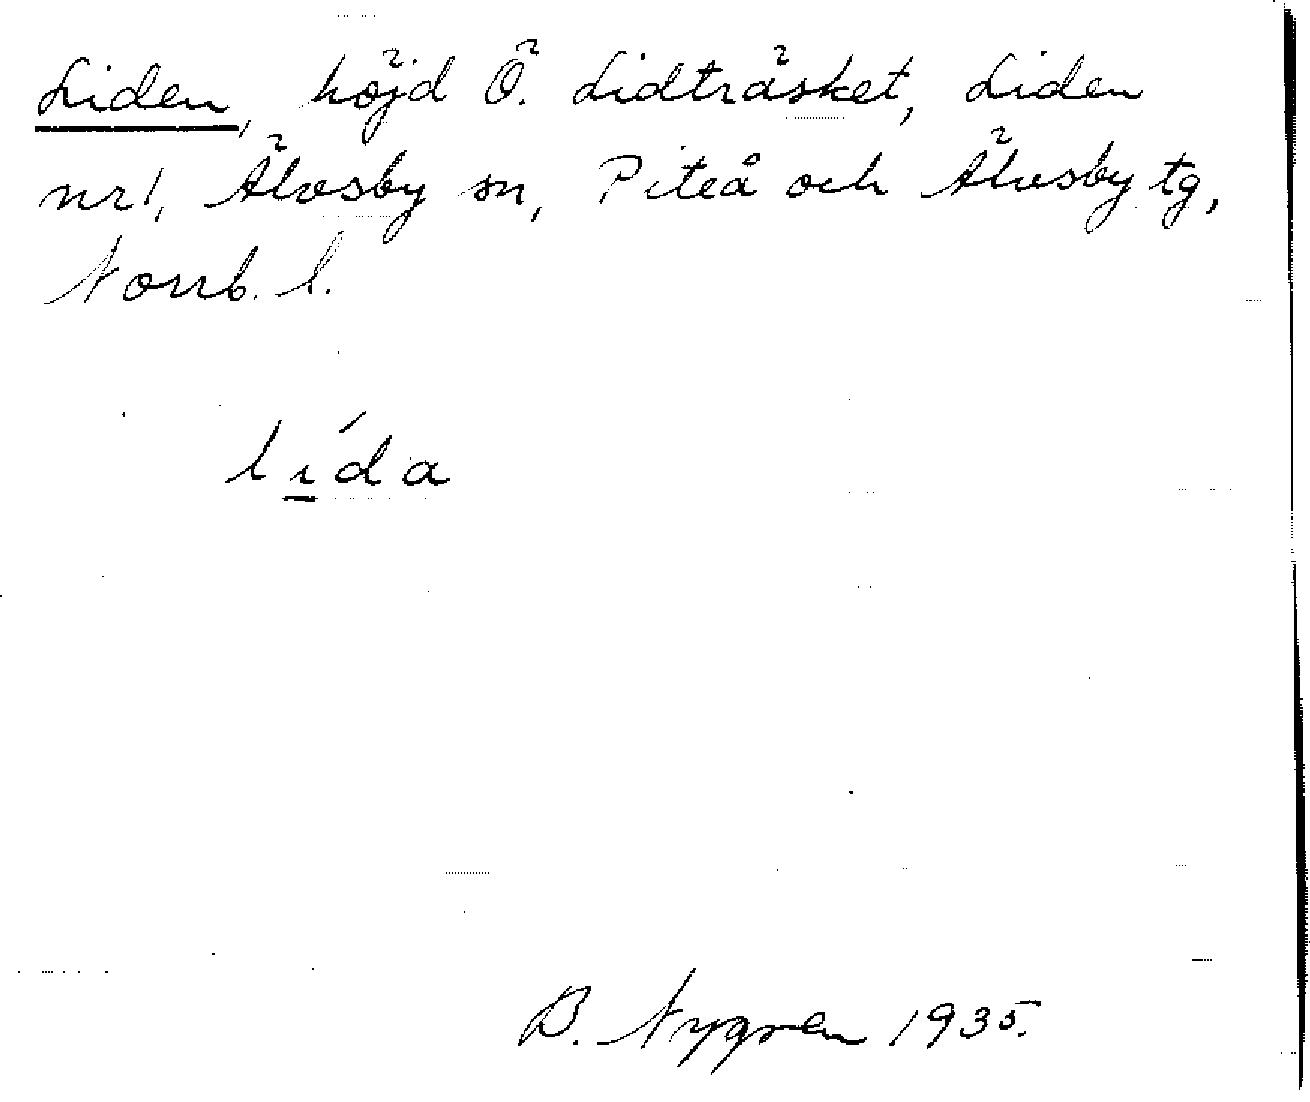 Liden, höjd Ö. Lidträsket, Liden
nr 1, Älvsby sn, Piteå och Älvsby tg,
Norrb. l.
lı̱́da
B. Nygren 1935.